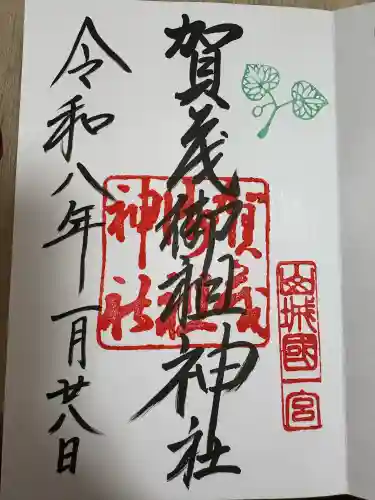 賀茂御祖神社
山城國一宮
賀茂御祖神社
令和八年一月廿八日